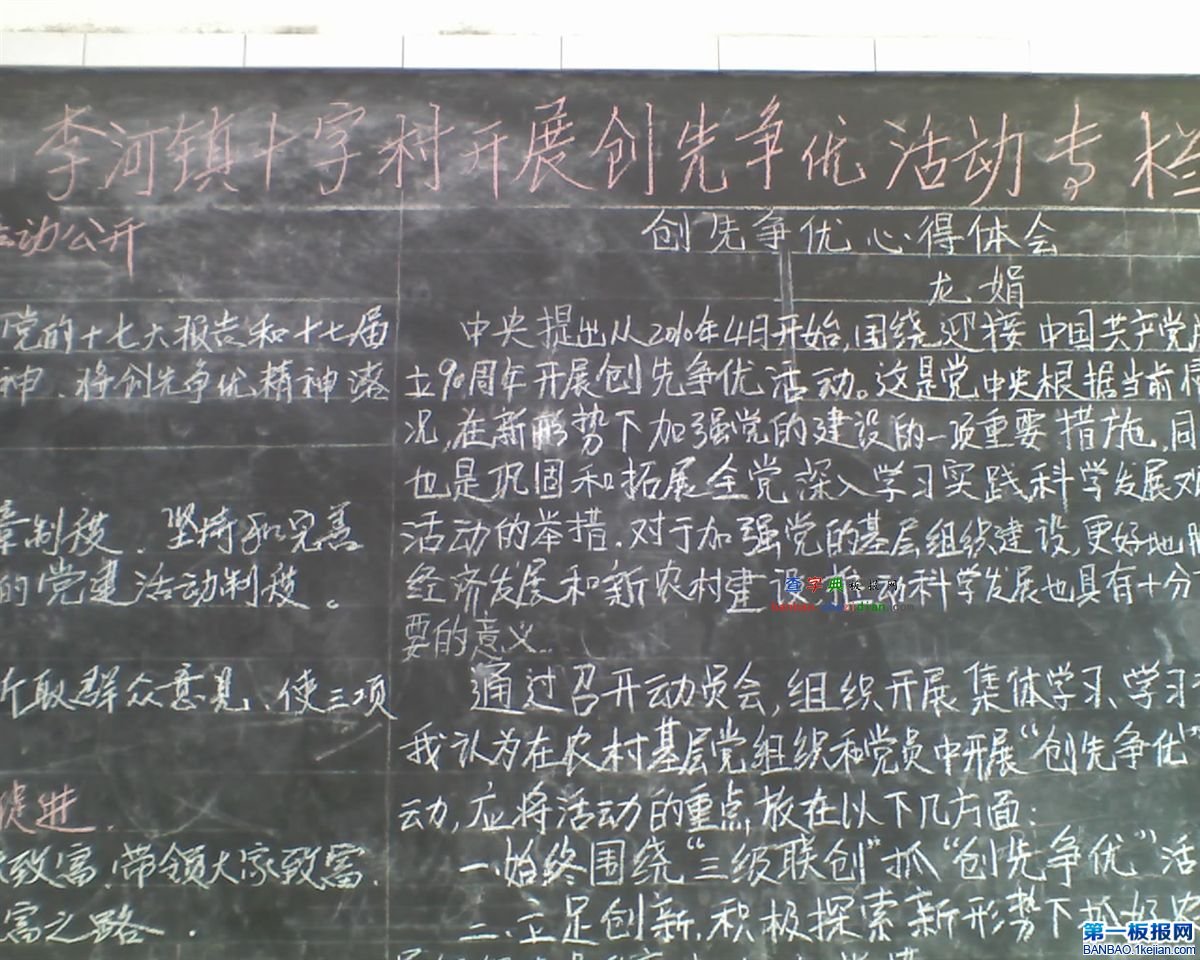 李河镇十字村开展创先争优活动专栏
活动公开
党的十七大报告和十七届
神、将创先争优精神落
章制度、坚持和完善
的党建活动制度。
取群众意见、使三项
促进.
致富.带领大家致富.
富之路.
创先争优心得体会
龙娟
中央提出从2010年4月开始,围绕迎接中国共产党
立90周年开展创先争优活动。这是党中央根据当前
况,在新形势下加强党的建设的一项重要措施,同
也是巩固和拓展全党深入学习实践科学发展观
活动的举措.对于加强党的基层组织建设,更好地
经济发展和新农村建设,推动科学发展也具有十分
要的意义.
通过召开动员会,组织开展集体学习、学习
我认为在农村基层党组织和党员中开展“创先争优”
动,应将活动的重点放在以下几方面:
一、始终围绕“三级联创”抓“创先争优”活
二、立足创新.积极探索新形势下抓好农
查字典板报网
第一板报网
BANBAO.1kejian.com